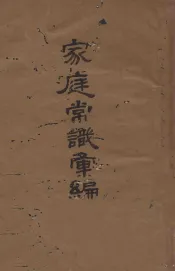 家庭常識彙編